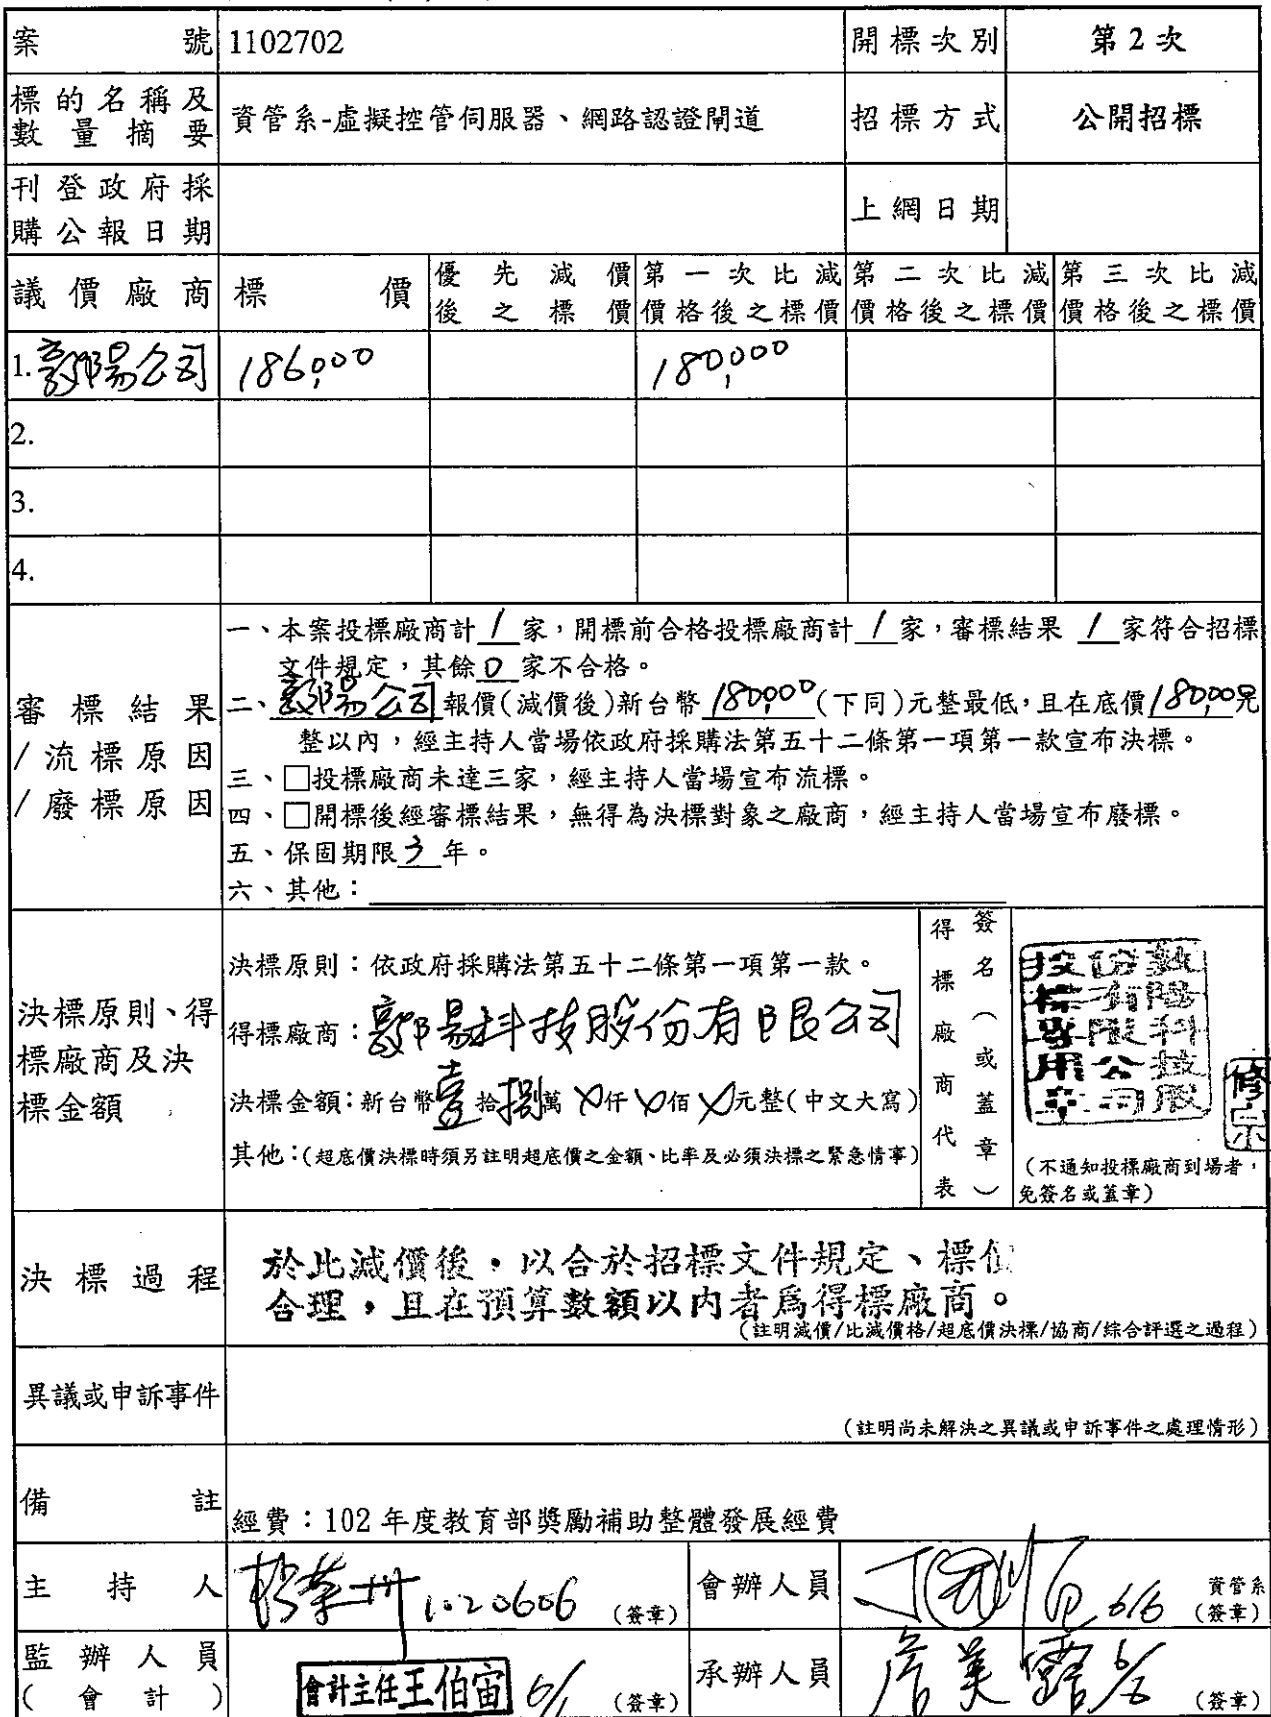 案號 1102702 開標次別 第2次
標的名稱及數量摘要 資管系-虛擬控管伺服器、網路認證閘道 招標方式 公開招標
刊登政府採購公報日期 上網日期
議價廠商 標價 優先減價後之標價 第一次比減價格後之標價 第二次比減價格後之標價 第三次比減價格後之標價
1.敦陽公司 186,000 180,000
2.
3.
4.
審標結果/流標原因/廢標原因
一、本案投標廠商計 1 家,開標前合格投標廠商計 1 家,審標結果 1 家符合招標
文件規定,其餘 0 家不合格。
二、敦陽公司報價(減價後)新台幣 180,000(下同)元整最低,且在底價180,000元
整以內,經主持人當場依政府採購法第五十二條第一項第一款宣布決標。
三、□投標廠商未達三家,經主持人當場宣布流標。
四、□開標後經審標結果,無得為決標對象之廠商,經主持人當場宣布廢標。
五、保固期限 3 年。
六、其他:
決標原則、得標廠商及決標金額
決標原則:依政府採購法第五十二條第一項第一款。
得標廠商:敦陽科技股份有限公司
決標金額:新台幣壹拾捌萬X仟X佰X元整(中文大寫)
其他:(超底價決標時須另註明超底價之金額、比率及必須決標之緊急情事)
得標廠商代表
簽名(或蓋章)
敦陽科技股份有限公司投標專用章
(不通知投標廠商到場者,
免簽名或蓋章)
決標過程
於此減價後,以合於招標文件規定、標價
合理,且在預算數額以內者為得標廠商。
(註明減價/比減價格/超底價決標/協商/綜合評選之過程)
異議或申訴事件
(註明尚未解決之異議或申訴事件之處理情形)
備註
經費:102年度教育部獎勵補助整體發展經費
主持人 1020606 (簽章) 會辦人員 6/6 資管系(簽章)
監辦人員(會計) 會計主任王伯宙 (簽章) 承辦人員 詹美露 6/6 (簽章)